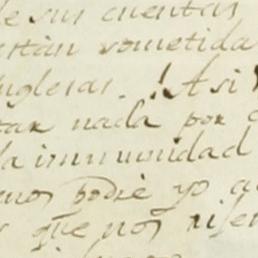 de sus cuentas
están sometida
inglesas. ! Asi
tar nada por
la immunidad
mos podré yo
que nos